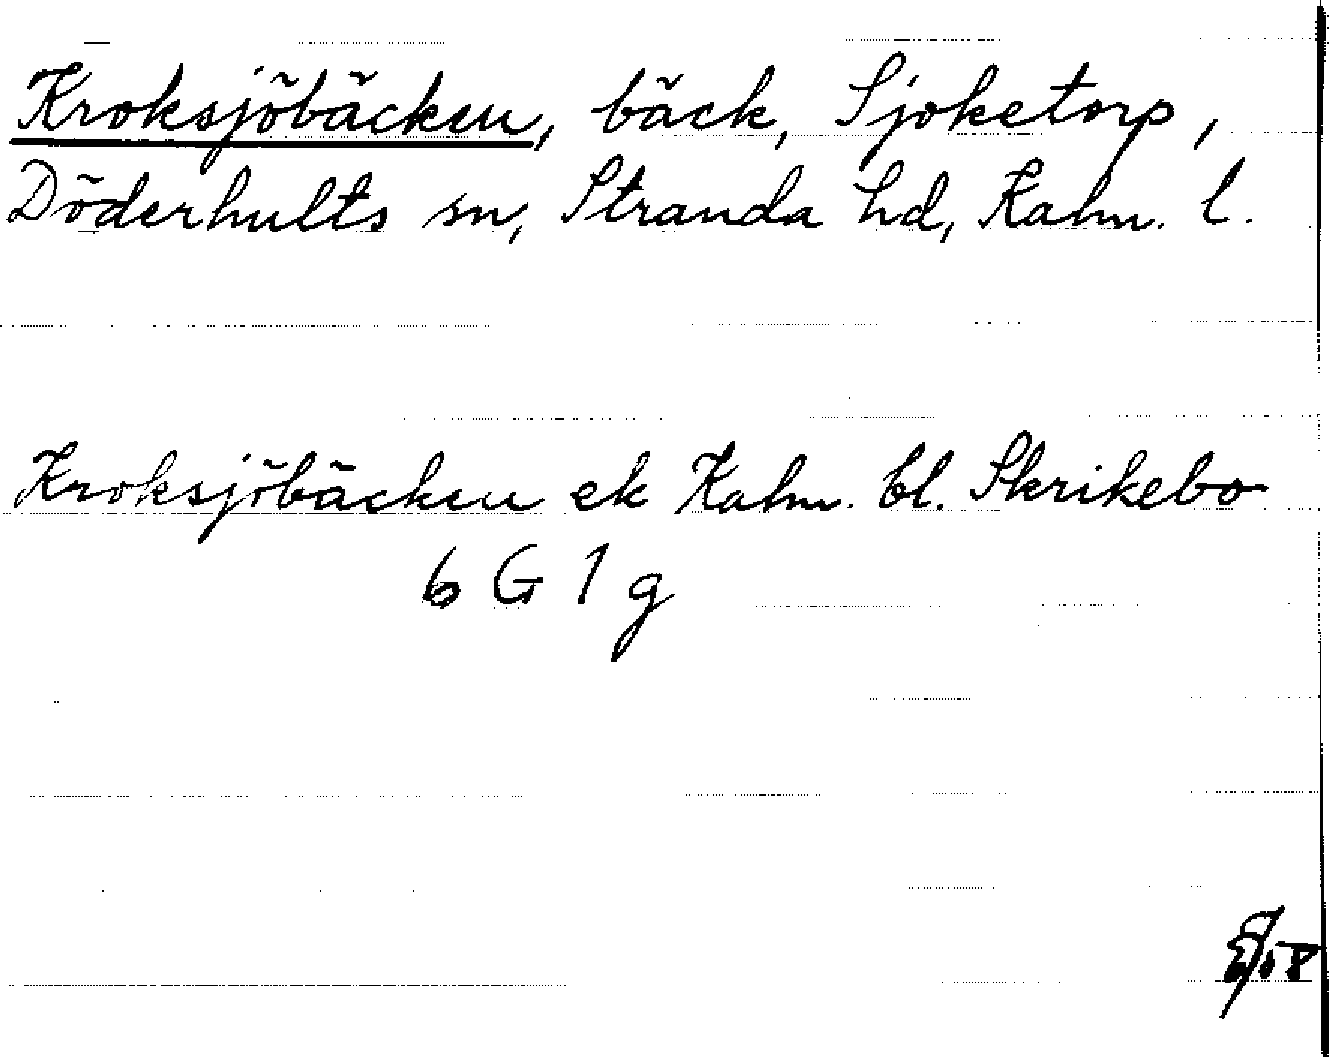 Kroksjöbäcken, bäck, Sjoketorp,
Döderhults sn, Stranda hd, Kalm. l.
Kroksjöbäcken ek Kalm. bl. Skrikebo
6 G 1 g